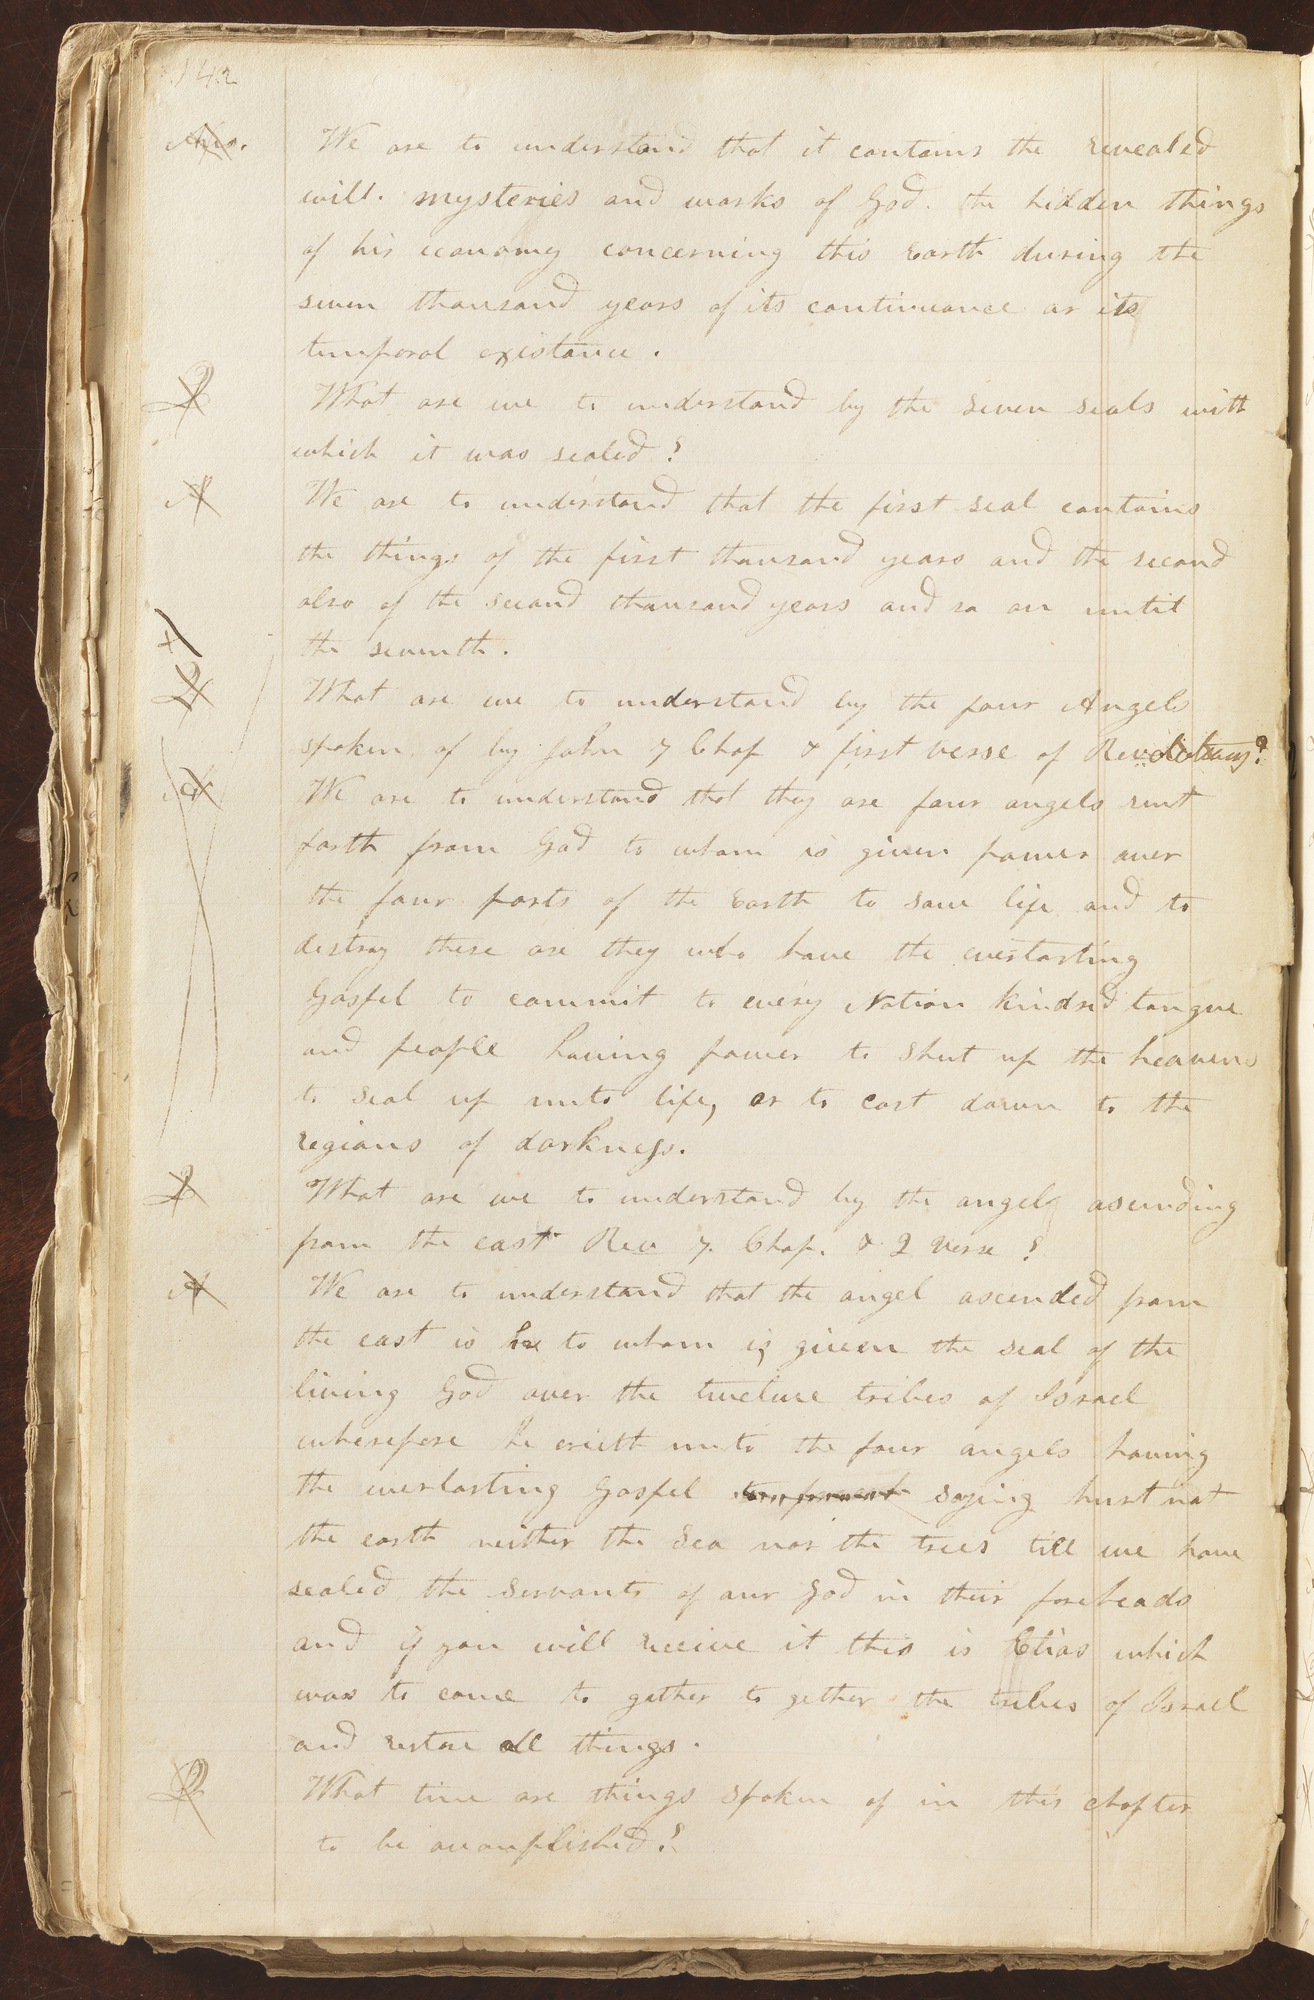 142
Ans. We are to understand that it contains the revealed
will. mysteries and works of God. the hidden things
of his economy concerning this Earth during the
seven thousand years of its continuance or its
temporal existance.
Q What are we to understand by the seven seals with
which it was sealed?
A We are to understand that the first seal contains
the things of the first thousand years and the second
also of the second thousand years and so on until
the seventh.
Q What are we to understand by the four Angels
spoken of by John 7 Chap & first verse of Revelations?
A We are to understand that they are four angels sent
forth from God to whom is given power over
the four parts of the Earth to save life and to
destroy these are they who have the everlasting
Gospel to commit to every Nation kindred tongue
and people having power to shut up the heavens
to seal up unto life, or to cast down to the
regions of darkness.
Q What are we to understand by the angel ascending
from the east Rev 7. Chap. & 2 verse?
A We are to understand that the angel ascended from
the east is he to whom is given the seal of the
living God over the twelve tribes of Israel
wherefore he crieth unto the four angels having
the everlasting Gospel saying hurt not
the earth neither the Sea nor the trees till we have
sealed the servants of our God in their foreheads
and if you will receive it this is Elias which
was to come to gather to gether the tribes of Israel
and restore all things.
Q What time are things spoken of in this chapter
to be acomplished?